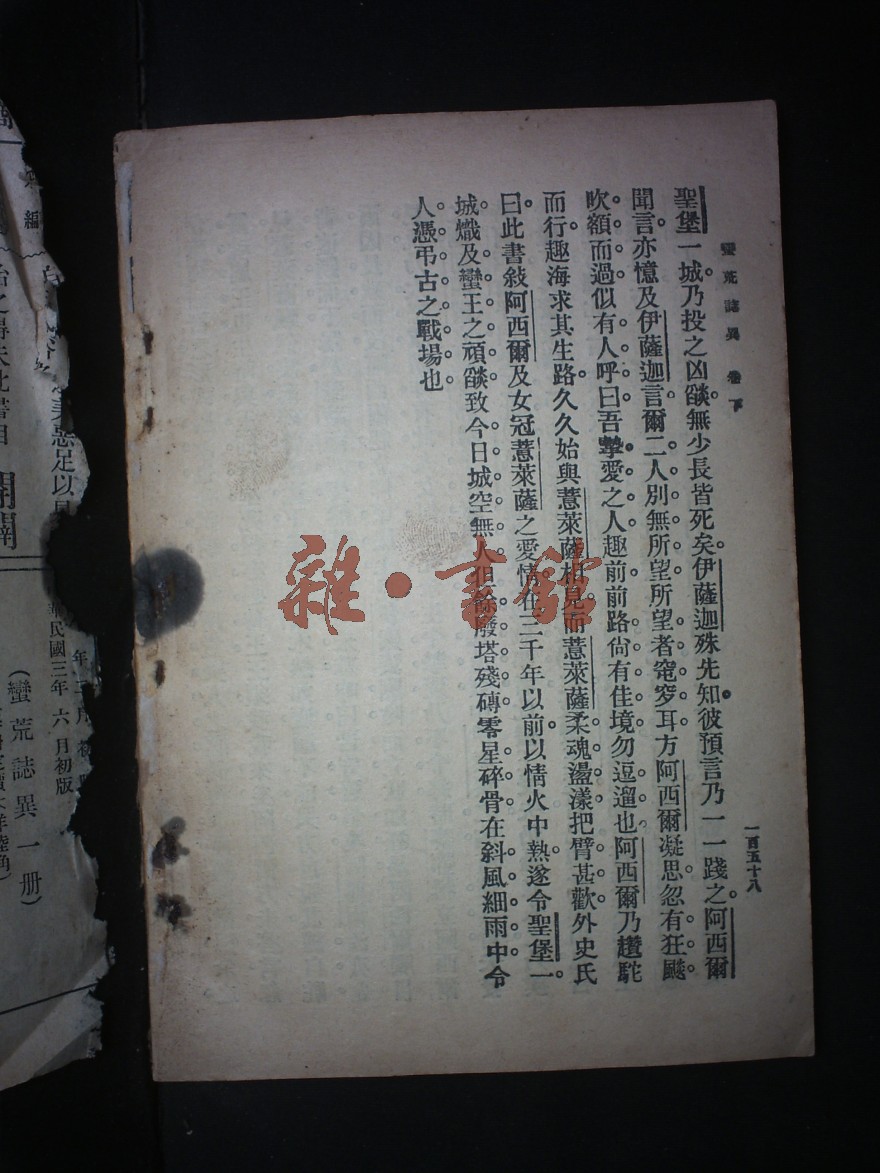 蠻荒誌異 卷下
一百五十八
聖堡一城。乃投之凶燄。無少長皆死矣。伊薩迦殊先知。彼預言乃一一踐之。阿西爾
聞言。亦憶及伊薩迦言爾二人別無所望。所望者窀穸耳。方阿西爾凝思。忽有狂飈。
吹額而過。似有人呼曰。吾摯愛之人。趣前。前路尙有佳境。勿逗遛也。阿西爾乃趲駝
而行。趣海求其生路。久久始與薏萊薩相見。而薏萊薩柔魂盪漾。把臂甚歡。外史氏
曰。此書敍阿西爾及女冠薏萊薩之愛情。在三千年以前。以情火中熱。遂令聖堡一
城熾。及蠻王之頑燄。致今日城空無人。但餘廢塔殘磚。零星碎骨。在斜風細雨中。令
人憑弔古之戰場也。
雜·書館
編
美惡足以
治之得失此書相
開關
民國三年六月初版
(蠻荒誌異一册)